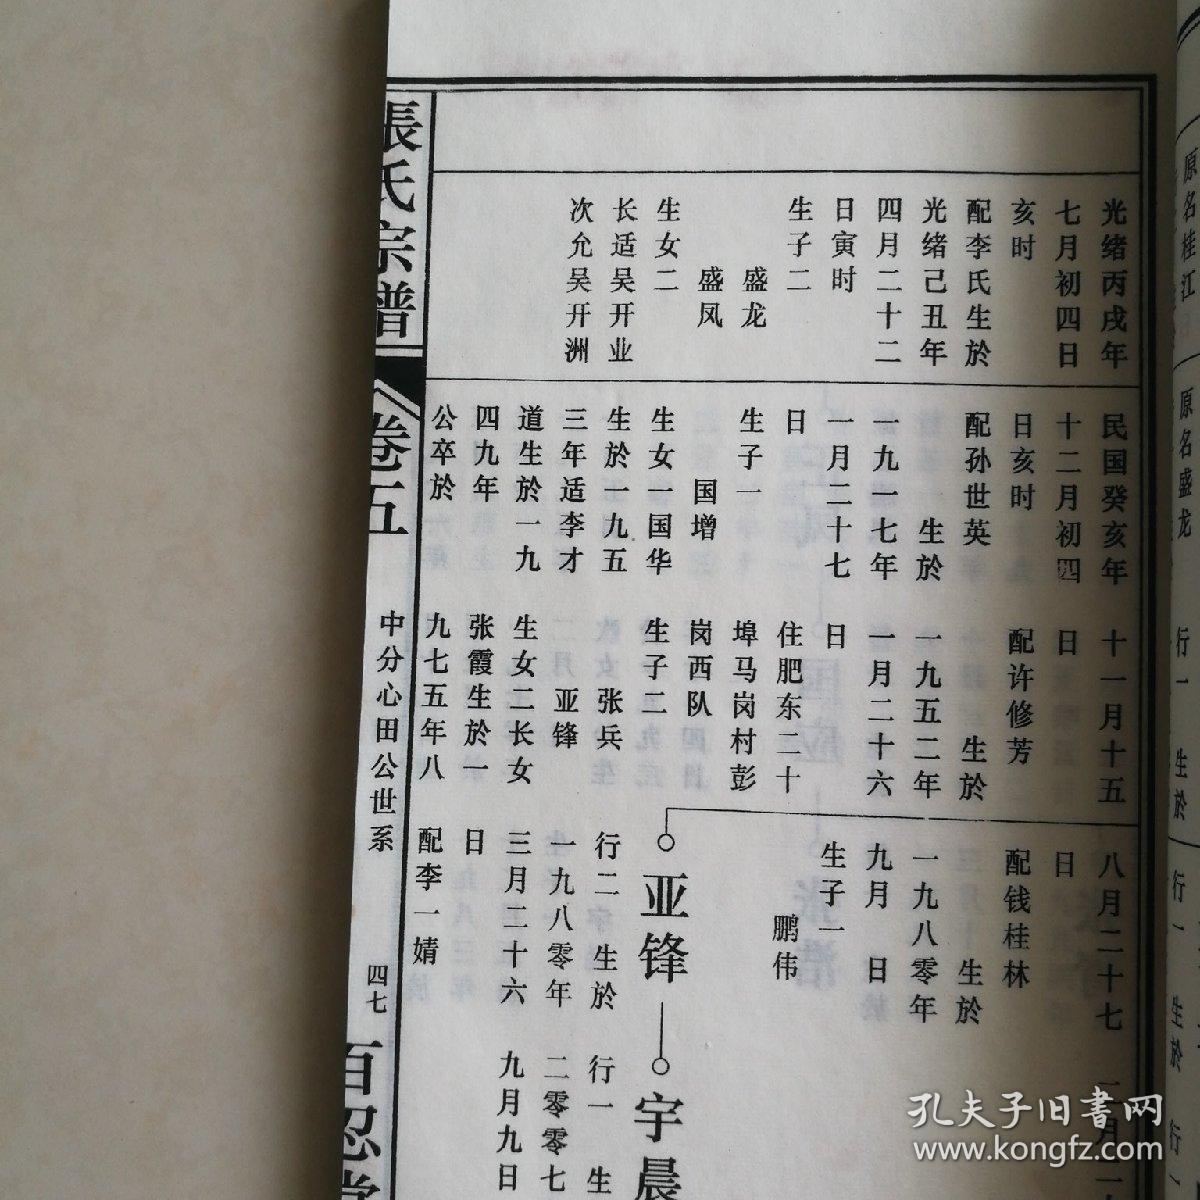 原名桂江
原名盛龙
行一　生於
行一　生於
行一
光绪丙戌年
七月初四日
亥时
配李氏生於
光绪己丑年
四月二十二
日寅时
生子二
盛龙
盛凤
生女二
长适吴开业
次允吴开洲
民国癸亥年
十二月初四
日亥时
配孙世英
生於
一九一七年
一月二十七
日
生子一
国增
生女一国华
生於一九五
三年适李才
道生於一九
四九年
公卒於
十一月十五
日
配许修芳
生於
一九五二年
一月二十六
日
住肥东二十
埠马岗村彭
岗西队
生子二
张兵
亚锋
生女二长女
张霞生於一
九七五年八
八月二十七
日
配钱桂林
生於
一九八零年
九月　日
生子一
鹏伟
亚锋
行二　生於
一九八零年
三月二十六
日
配李一婧
宇晨
行一　生
二零零七
九月九日
張氏宗譜
卷五
中分心田公世系
四七
百忍堂
孔夫子旧书网
www.kongfz.com